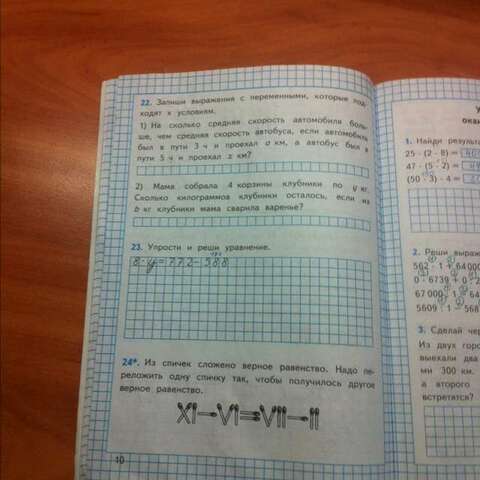 22. Запиши выражения с переменными, которые под-
ходят к условиям.
1) На сколько средняя скорость автомобиля боль-
ше, чем средняя скорость автобуса, если автомобиль
был в пути 3 ч и проехал a км, а автобус был в
пути 5 ч и проехал z км?
2) Мама собрала 4 корзины клубники по y кг.
Сколько килограммов клубники осталось, если из
b кг клубники мама сварила варенье?
23. Упрости и реши уравнение.
8·y=772-588
24*. Из спичек сложено верное равенство. Надо пе-
реложить одну спичку так, чтобы получилось другое
верное равенство.
XI-VI=VII-II
10
1. Найди результа
25 · (2 · 8) = 40
47 · (5 · 2) =
(50 · 3) · 4 =
2. Реши выраж
562 · 1 + 64 00
0 · 6739 + 0 : 2
67 000 : 1 - 64
5609 : 1 - 568
3. Сделай чер
Из двух горо
выехали два
ми 300 км.
а второго
встретятся?